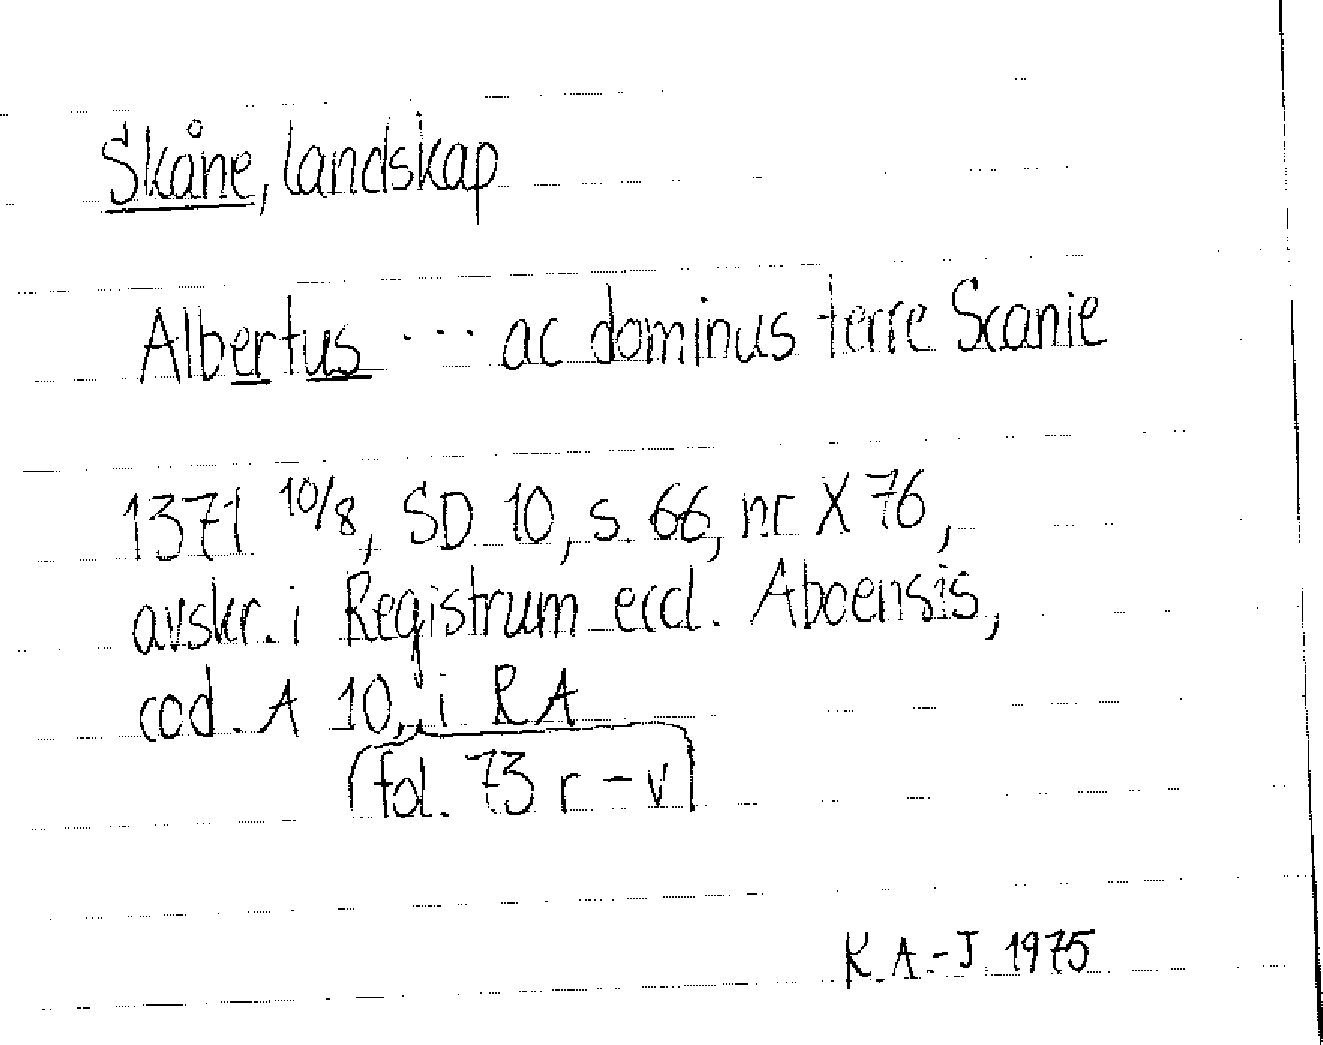 Skåne, landskap
Albertus ... ac dominus terre Scanie
1371 10/8, SD 10, s. 66, nr X 76,
avskr. i Registrum eccl. Aboensis,
cod. A 10, i RA
fol. 73 r - v
K.A.-J. 1975